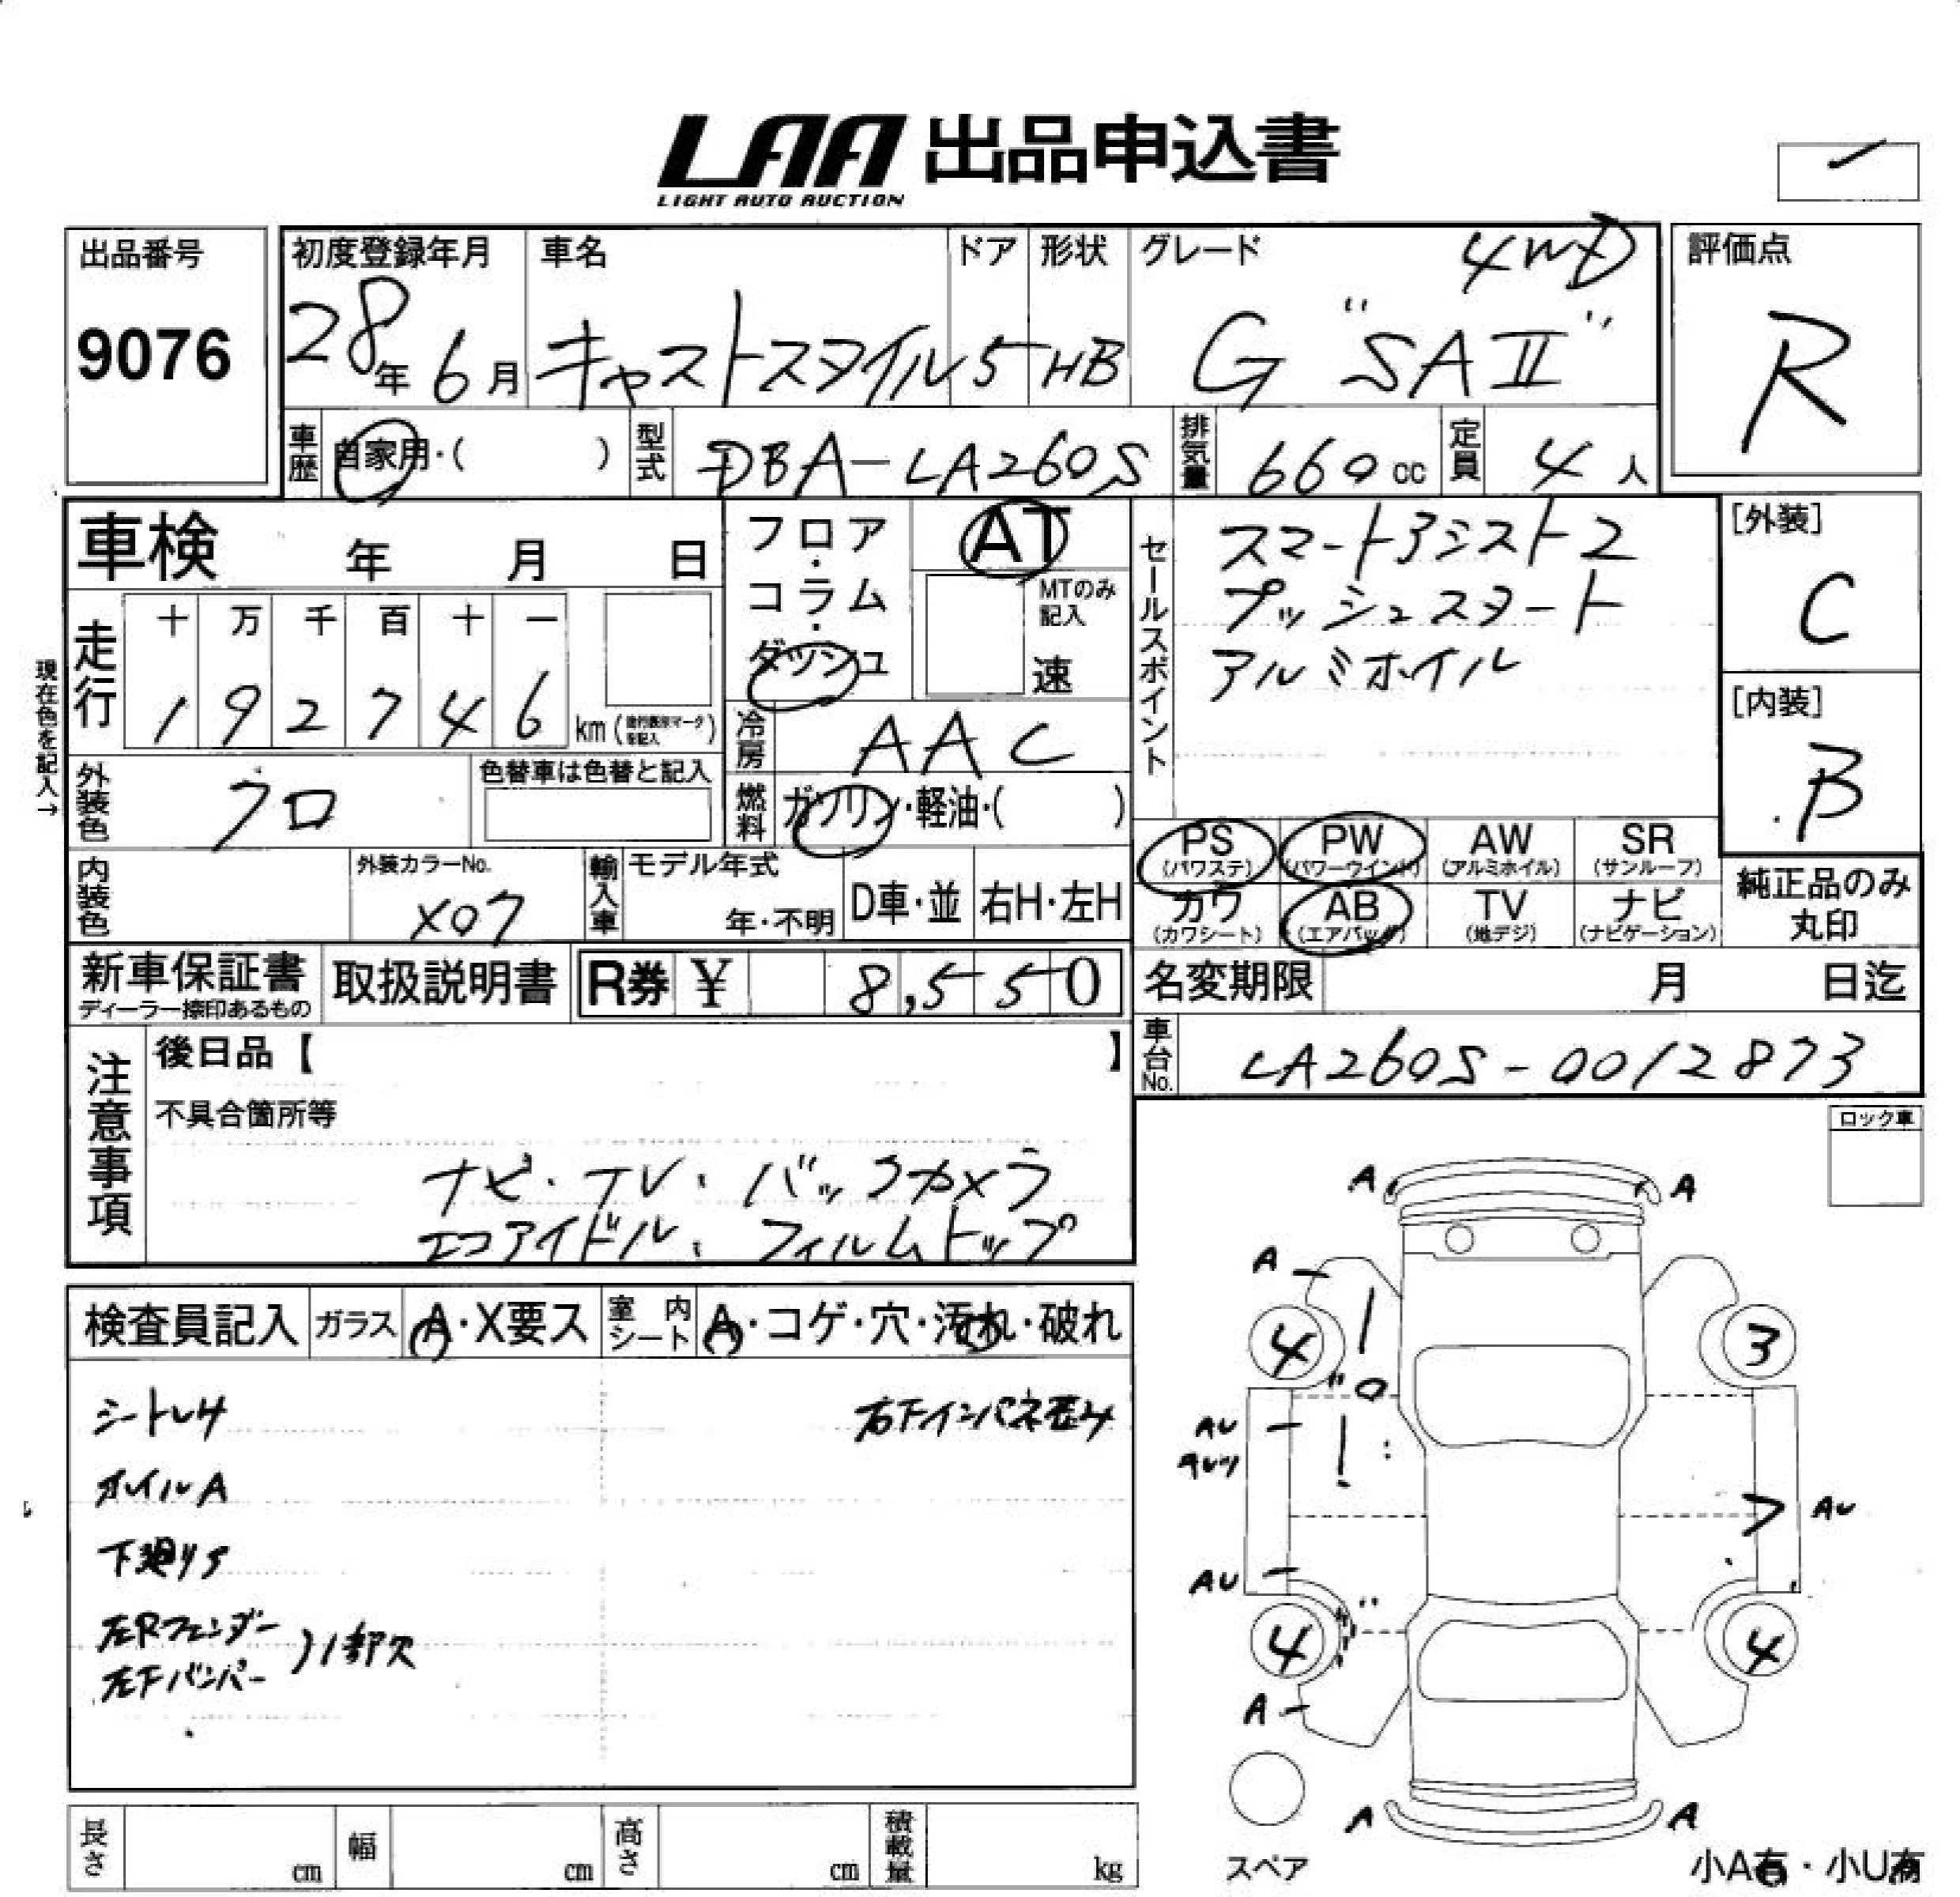 LAA 出品申込書
LIGHT AUTO AUCTION
出品番号
9076
初度登録年月
28年 6月
車名
キャストスタイル
ドア
5
形状
HB
グレード
4WD
G "SAⅡ"
評価点
R
車歴 自家用・( )
型式 DBA-LA260S
排気量 660 cc
定員 4 人
車検 年 月 日
フロア・コラム・ダッシュ
AT
MTのみ記入
速
セールスポイント
スマートアシスト2
プッシュスタート
アルミホイル
[外装]
C
[内装]
B
現在色を記入→
走行
十 万 千 百 十 一
1 9 2 7 4 6 km
冷房 AAC
外装色 クロ
色替車は色替と記入
燃料 ガソリン・軽油・( )
PS (パワステ)
PW (パワーウインド)
AW (アルミホイル)
SR (サンルーフ)
カワ (カワシート)
AB (エアバッグ)
TV (地デジ)
ナビ (ナビゲーション)
純正品のみ
丸印
内装色
外装カラーNo.
X07
輸入車
モデル年式
年・不明
D車・並
右H・左H
新車保証書
ディーラー捺印あるもの
取扱説明書
R券 ¥ 8,550
名変期限 月 日迄
車台No. LA260S-0012873
注意事項
後日品【 】
不具合箇所等
ナビ・TV・バックカメラ
エコアイドル・フィルムトップ
ロック車
検査員記入
ガラス
A・X要ス
室内シート
A・コゲ・穴・汚れ・破れ
シートレサ
右下インパネ歪み
オイルA
下廻りS
左Rフェンダー
左Fバンパー
)1部欠
A A
A
4 3
AU
AU
AU
4 4
A
A A
スペア
小A有・小U有
長さ cm
幅 cm
高さ cm
積載量 kg